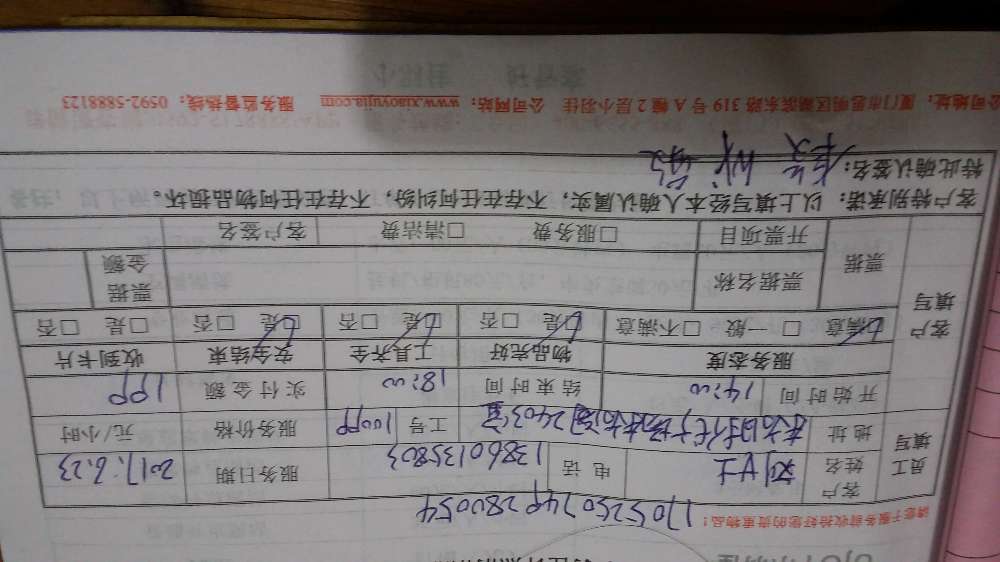 请您于服务前收拾好您的贵重物品！
1705250749280054
员工填写 客户姓名 刘女士 电话 13860135803 服务日期 2017.6.23
地址 工号 服务价格 元/小时
开始时间 14:00 结束时间 18:00 实付金额 199
客户填写 服务态度 物品完好 工具齐全 安全结束 收到卡片
□满意 □一般 □不满意 □是 □否 □是 □否 □是 □否 □是 □否
票据 票据名称 票据金额
开票项目 □服务费 □清洁费 客户签名
客户特别承诺：以上填写经本人确认属实，不存在任何纠纷，不存在任何物品损坏。
特此确认签名：
公司地址：厦门市思明区湖滨东路319号A幢2层小羽佳 公司网站：www.xiaoyujia.com 服务监督热线：0592-5888123